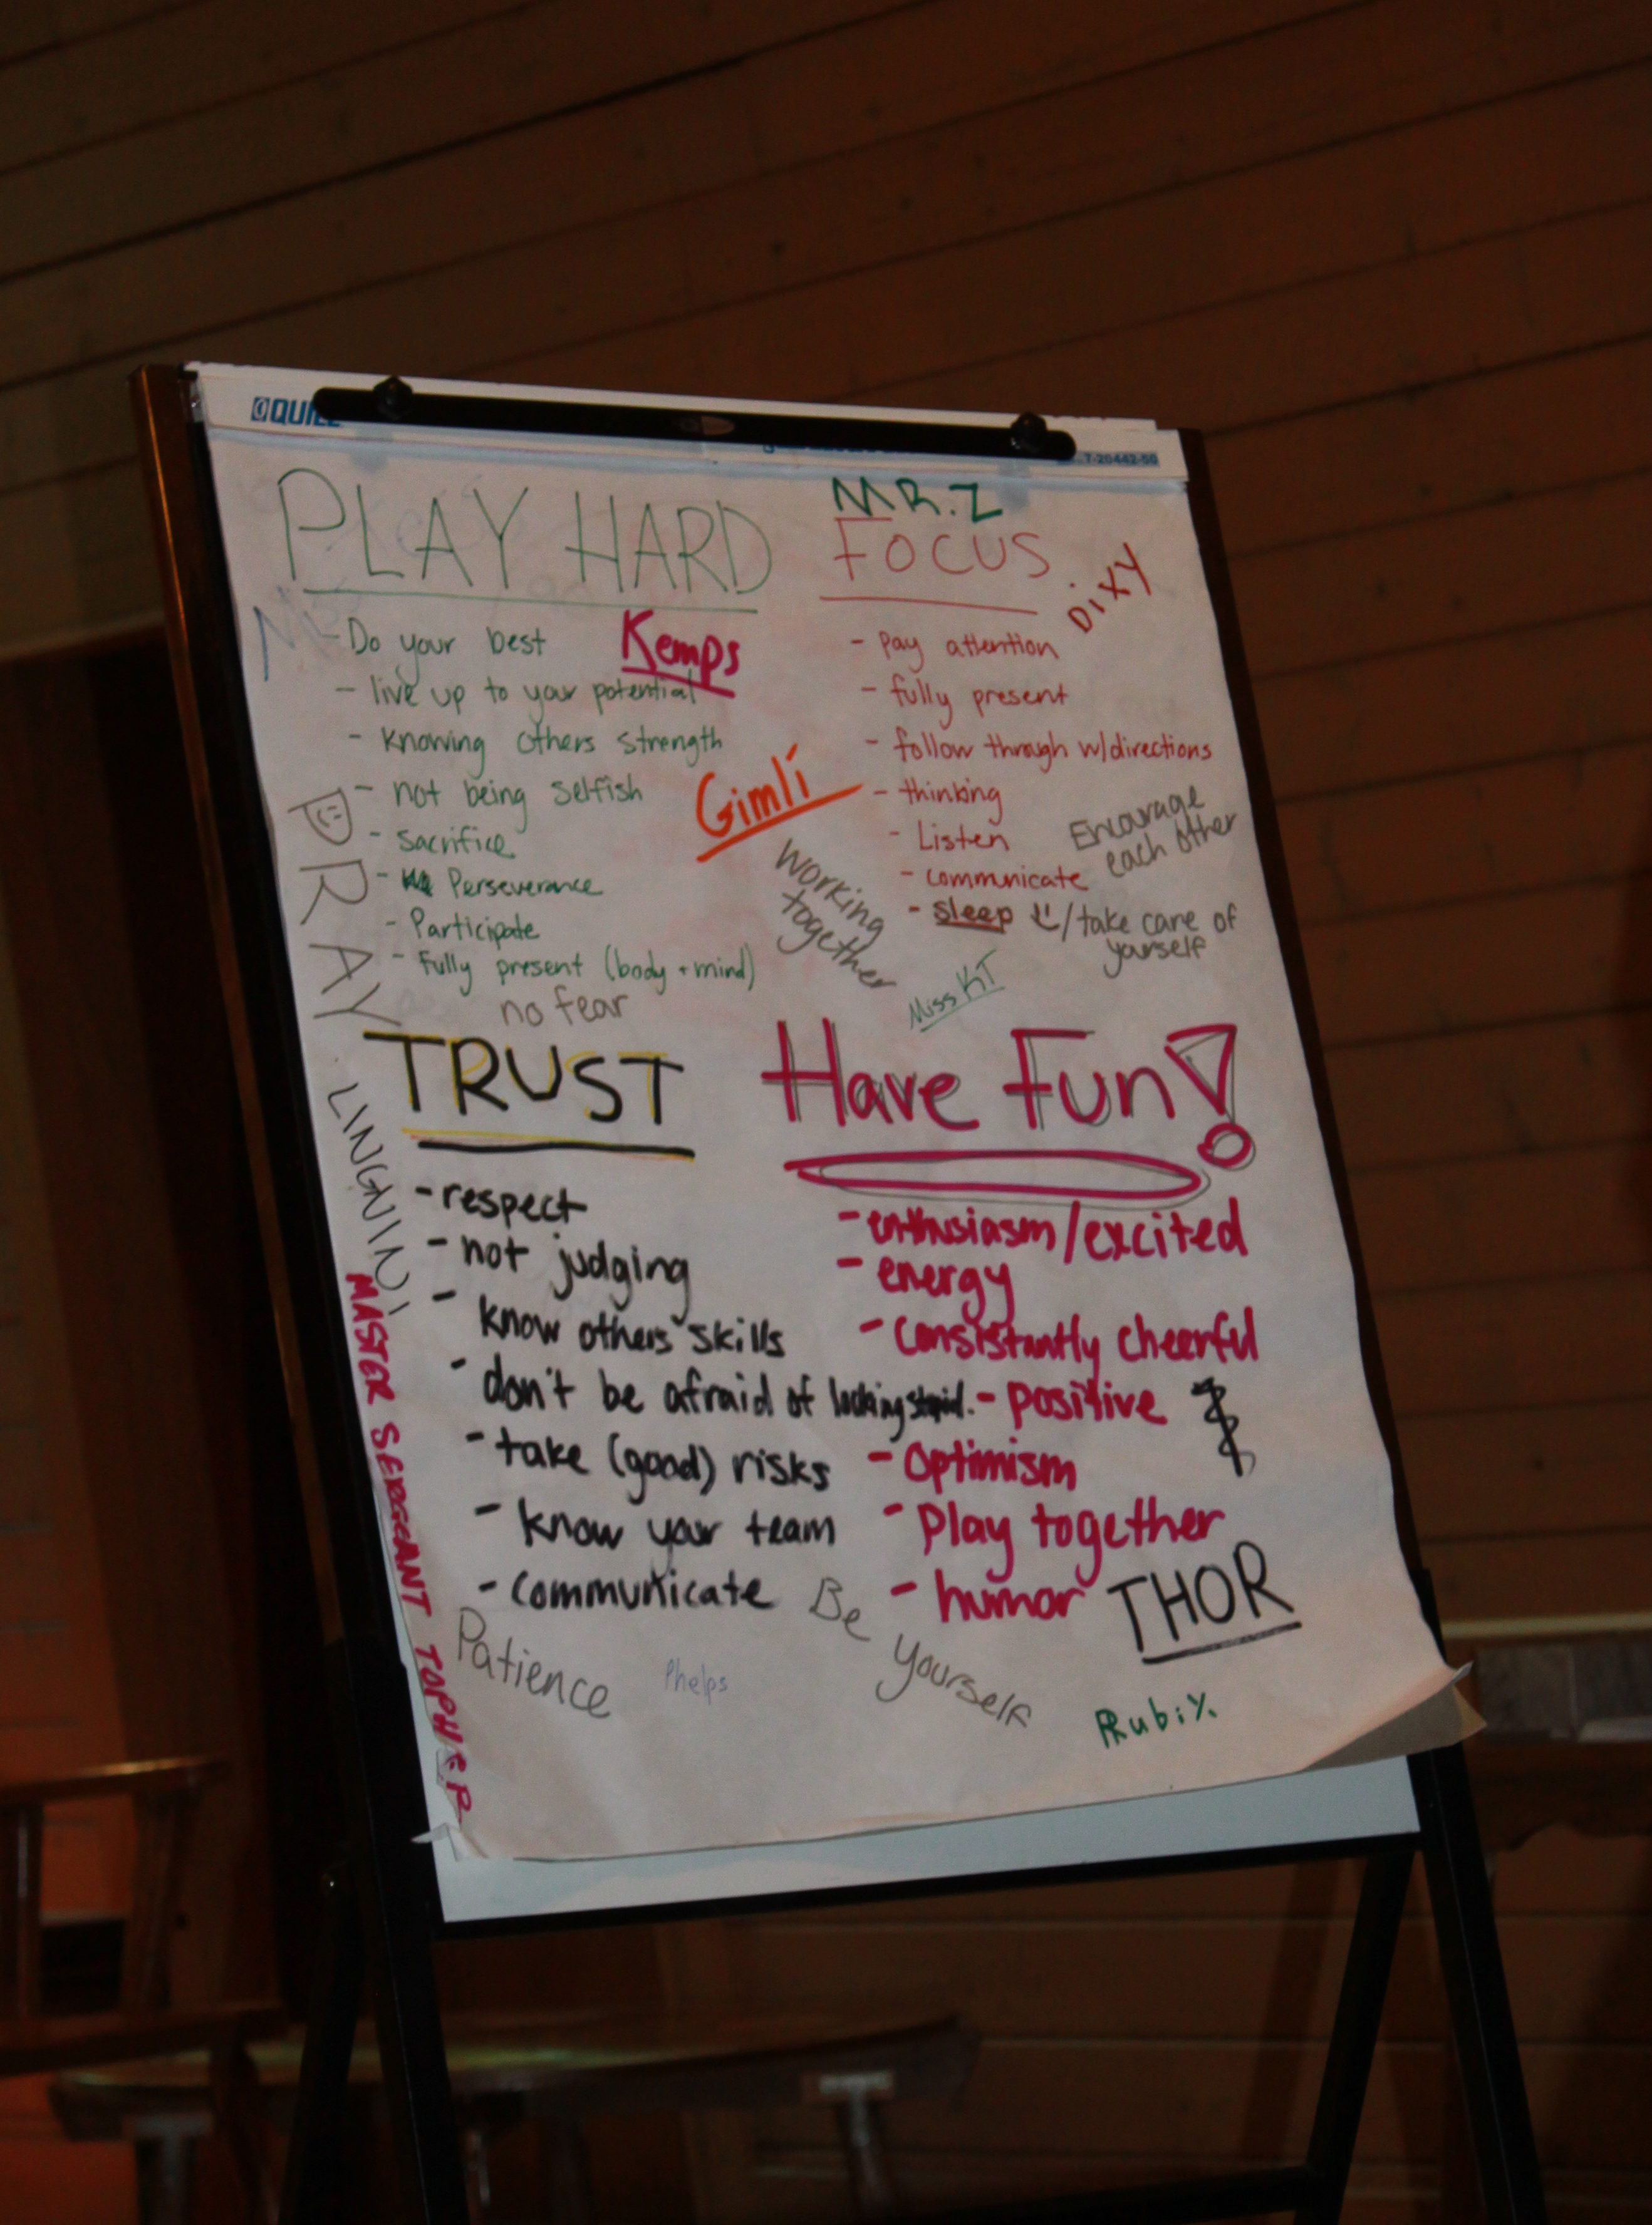 QUILL
7-20442-50
PLAY HARD
- Do your best
- live up to your potential
- Knowing others strength
- not being selfish
- Sacrifice
- Perseverance
- Participate
- Fully present (body + mind)
no fear
Kemps
Gimli
PRAY
MR. Z
FOCUS
DiXY
- Pay attention
- fully present
- follow through w/directions
- thinking
- Listen
- communicate
- Sleep / take care of
yourself
Encourage
each other
Working
together
Miss KT
TRUST
- respect
- not judging
- know others skills
- don't be afraid of looking stupid.
- take (good) risks
- know your team
- communicate
Patience
LINGUINI
MASTER SERGEANT TOPHER
Have Fun!
- enthusiasm/excited
- energy
- Consistantly cheerful
- positive
- Optimism
- Play together
- humor
THOR
Be yourself
Phelps